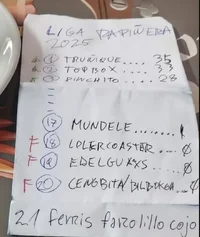 LIGA PAPIÑERA
2025
① TRUÑIQUE .... 35
② TOPBOX .... 33
③ PINCHITO .... 28
⑰ MUNDELE........ 1
F ⑱ LOLERCOASTER... 0
F ⑲ EDELGUXXS ..... 0
F ⑳ CENOBITA/ 0
21 ferris farolillo cojo